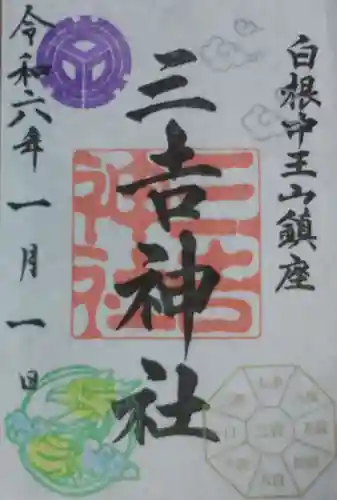 白根中王山鎮座
三吉神社
三吉神社
令和六年一月一日